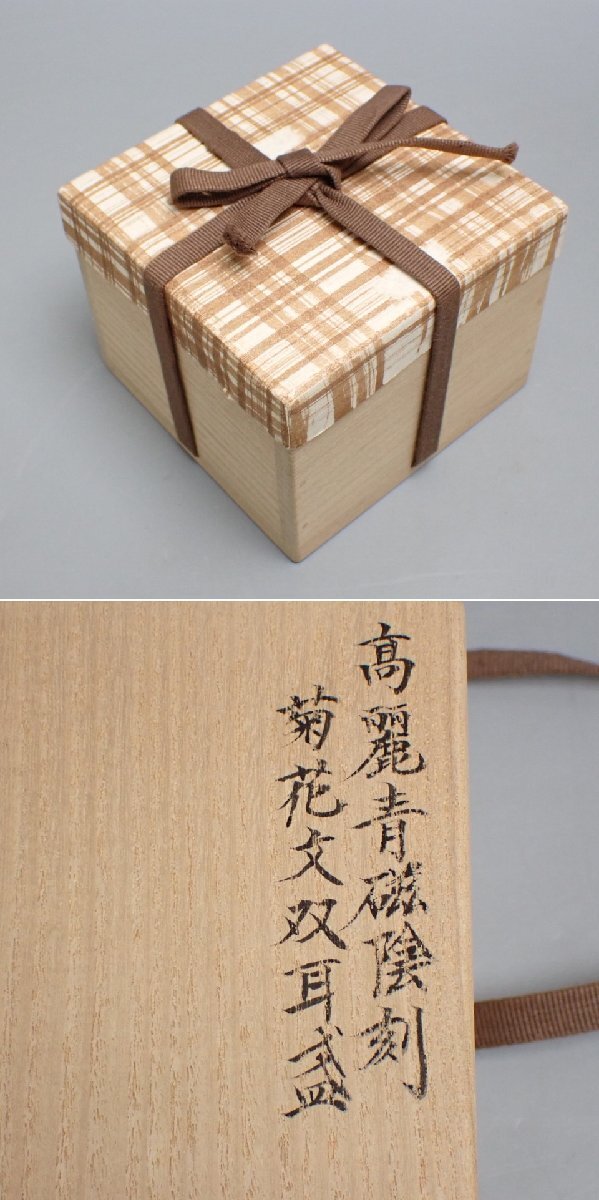 高麗青磁陰刻
菊花文双耳盏